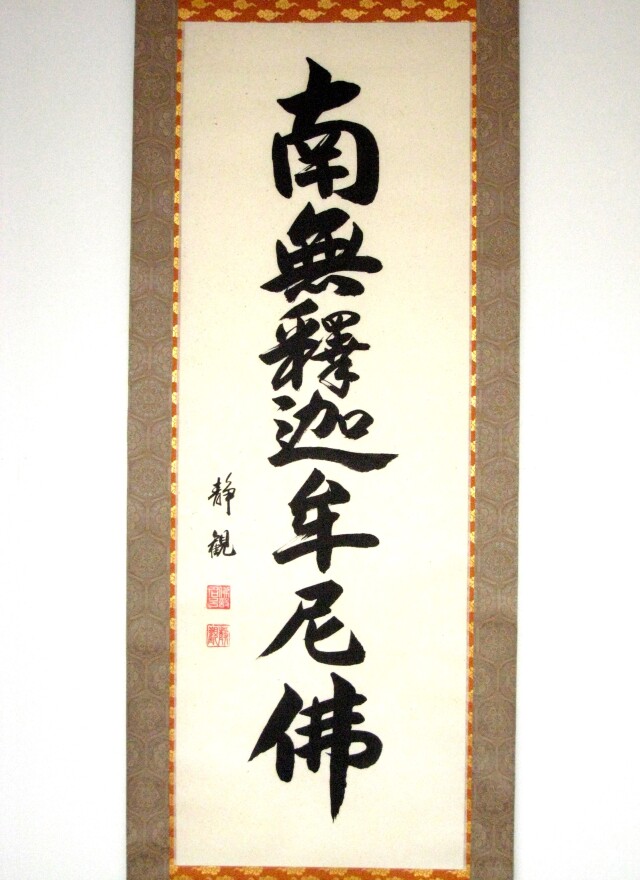 南無釋迦牟尼佛
静觀